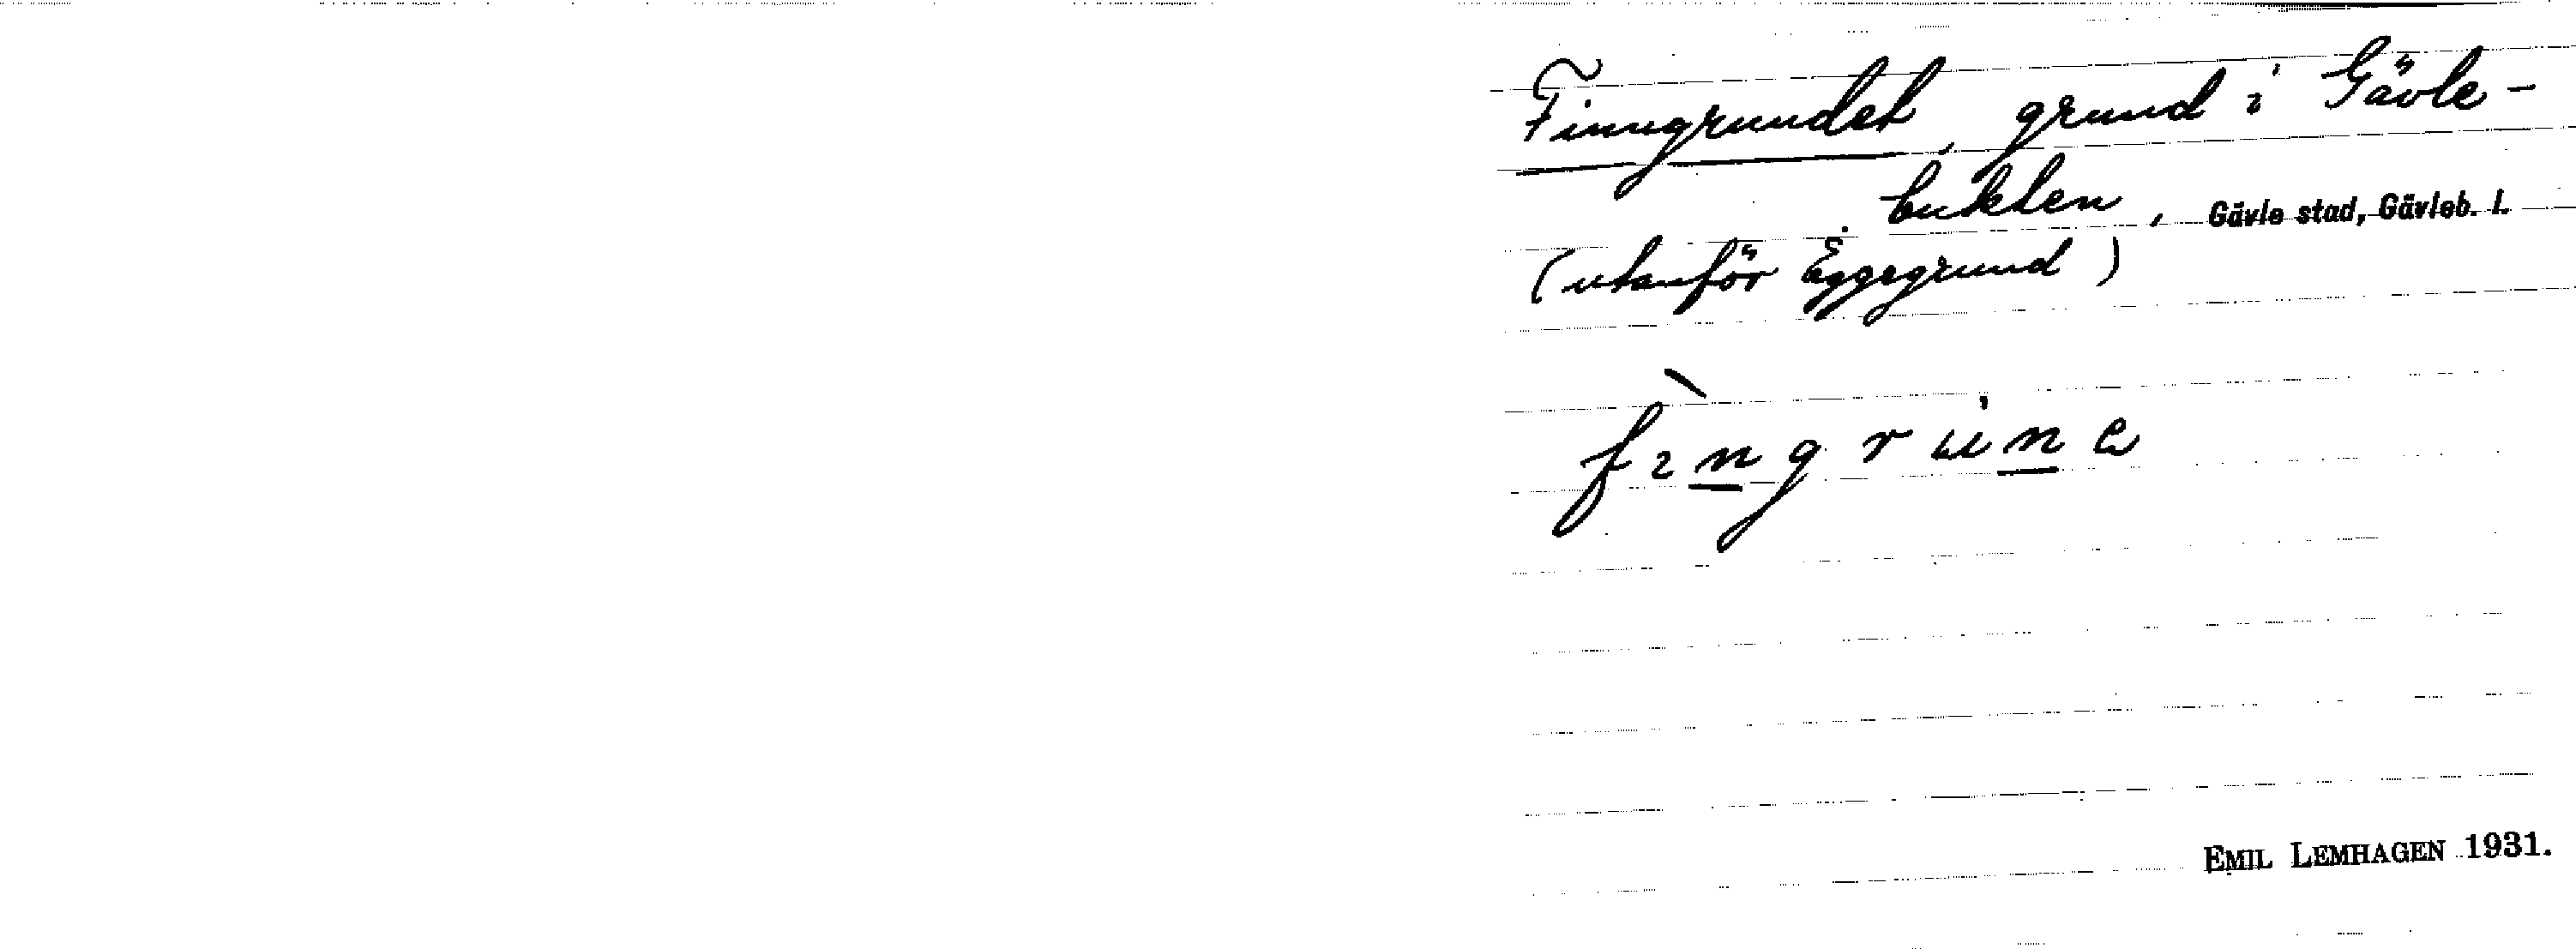 Finngrundet, grund i Gävle-
bukten, Gävle stad, Gävleb. l.
(utanför Eggegrund)
fìngrúne
EMIL LEMHAGEN 1931.